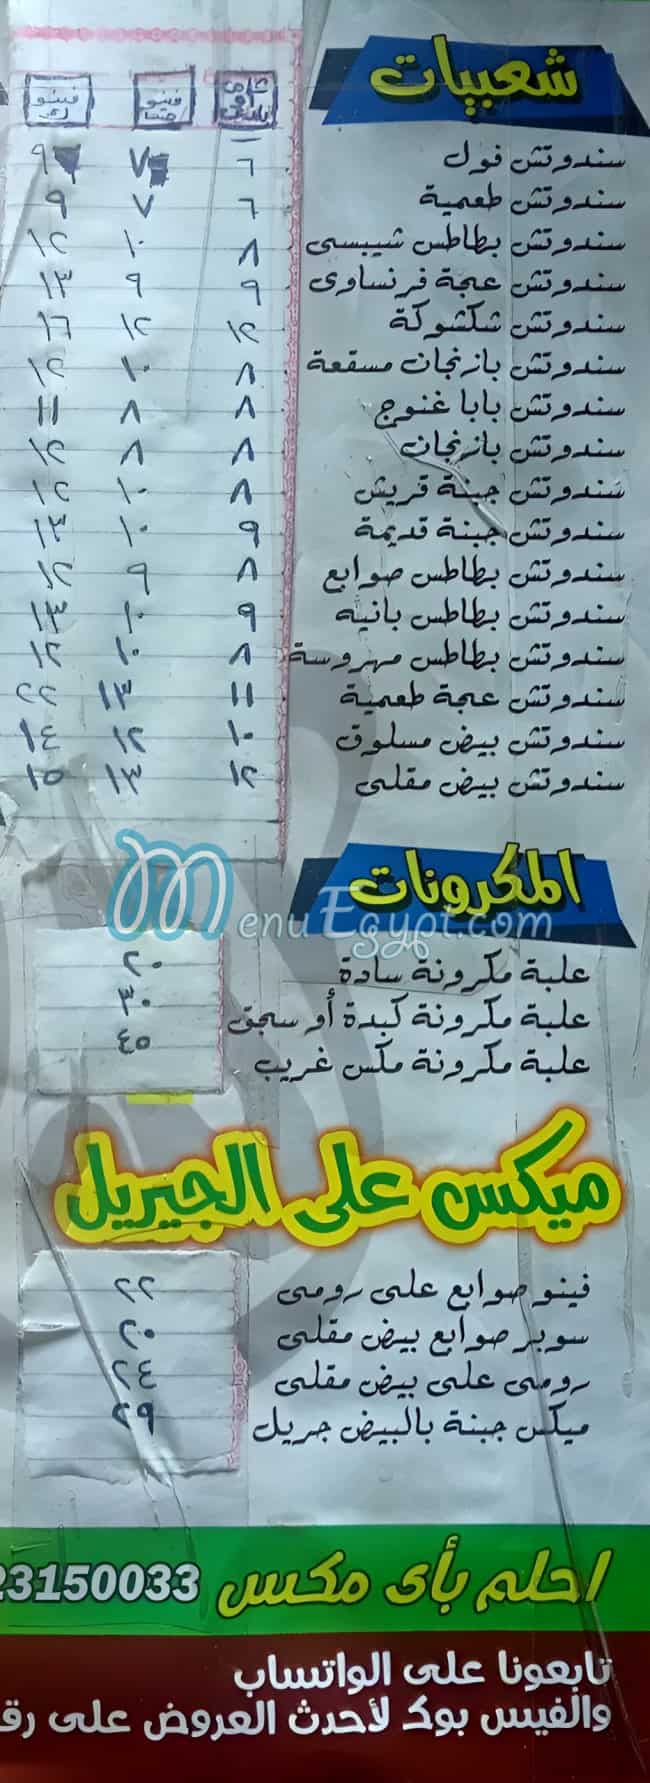 شعبيات
شامى أو بلدى	فينو	فينو
سندوتش فول ٦ ٧ ٩
سندوتش طعمية ٦ ٧ ٩
سندوتش بطاطس شيبسى ٨ ١٠ ١٢
سندوتش عجة فرنساوى ٩ ٩ ١٣
سندوتش شكشوكة ١٢ ١٢ ١٦
سندوتش بازنجان مسقعة ٨ ١٠ ١٢
سندوتش بابا غنوج ٨ ٨ ١١
سندوتش بازنجان ٨ ٨ ١٢
سندوتش جبنة قريش ٨ ١٠ ١٢
سندوتش جبنة قديمة ٩ ١٠ ١٣
سندوتش بطاطس صوابع ٨ ٩ ١٢
سندوتش بطاطس بانيه ٩ ١٠ ١٣
سندوتش بطاطس مهروسة ٨ ١٠ ١٢
سندوتش عجة طعمية ١١ ١٣ ٢٢
سندوتش بيض مسلوق ١٠ ١٢ ١٤
سندوتش بيض مقلى ١٢ ١٣ ١٥
المكرونات
MenuEgypt.com
علبة مكرونة سادة ٢٠
علبة مكرونة كبدة أو سجق ٣٠
علبة مكرونة مكس غريب ٤٥
ميكس على الجيريل
فينو صوابع على رومى ٢٢
سوبر صوابع بيض مقلى ٢٠
رومى على بيض مقلى ٢٤
ميكس جبنة بالبيض جريل ٢٩
احلم بأى مكس 23150033
تابعونا على الواتساب
والفيس بوك لأحدث العروض على رق